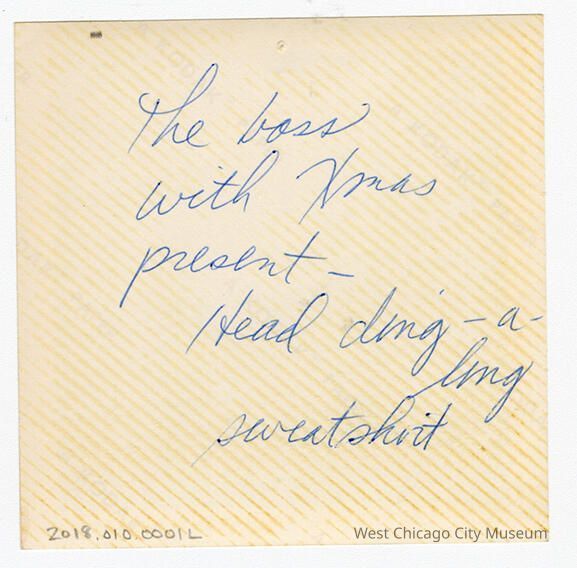 the boss
with Xmas
present -
Head ding-a-
ling
sweatshirt
2018.010.0001L
West Chicago City Museum